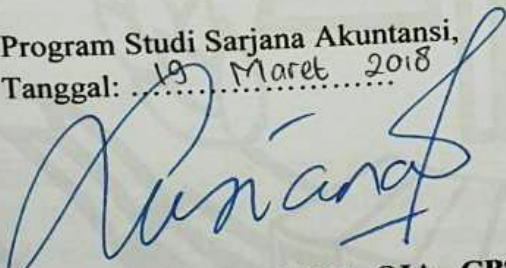 Program Studi Sarjana Akuntansi,
Tanggal: 19 Maret 2018